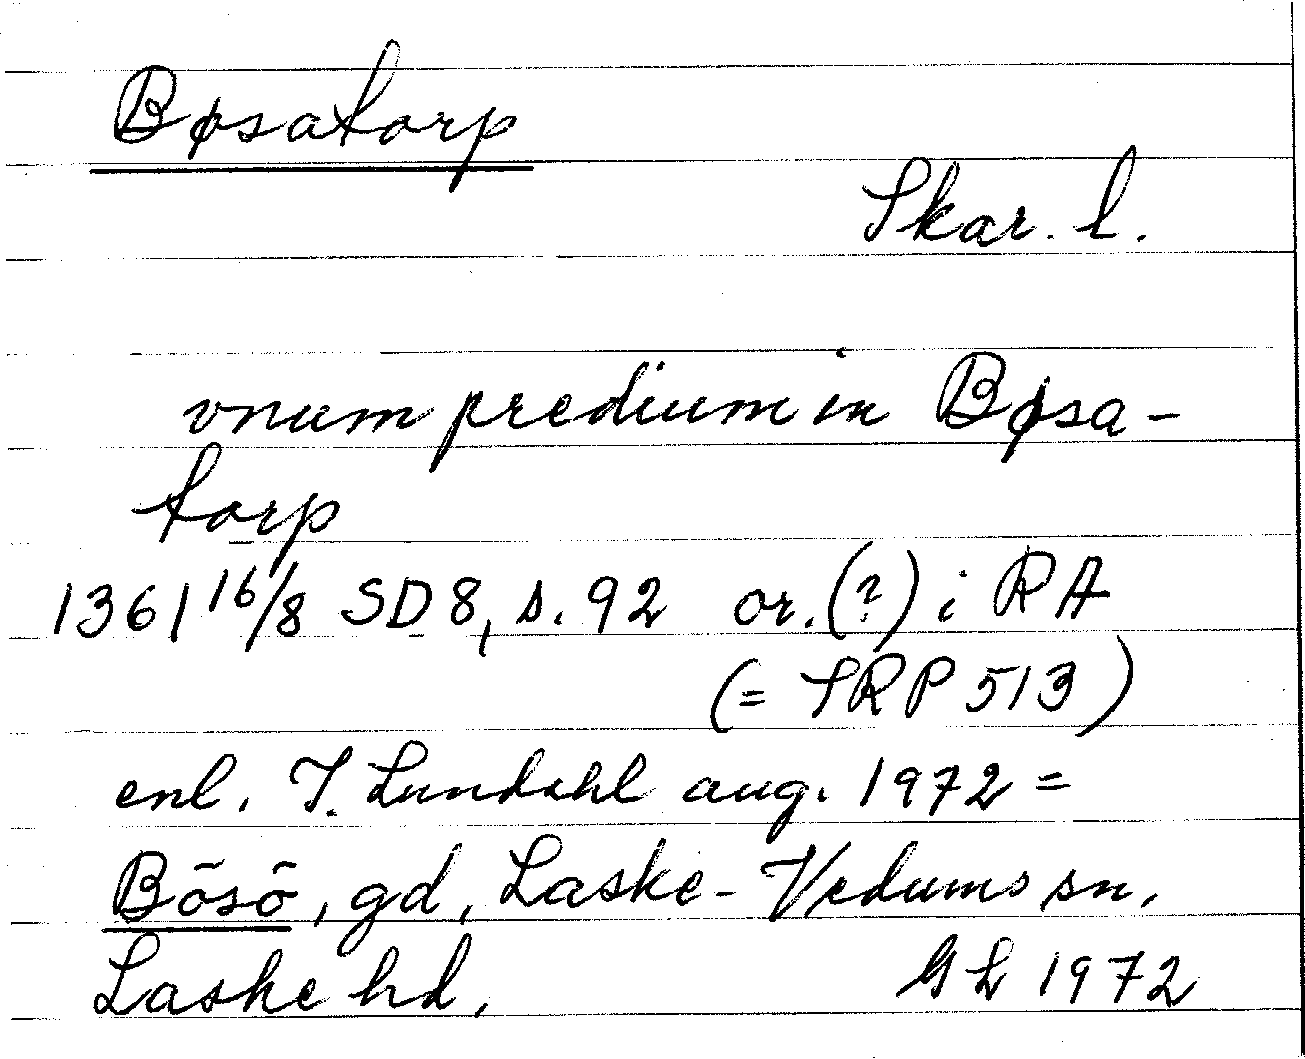 Bøsatorp
Skar. l.
vnum predium in Bøsa-
torp
1361 16/8 SD 8, s. 92 or. (?) i RA
(= SRP 513)
enl. I. Lundahl aug. 1972 =
Bösö, gd, Laske-Vedums sn,
Laske hd.
GL 1972